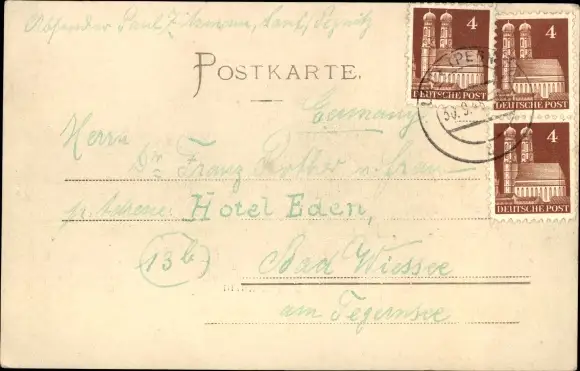 Absender Paul
POSTKARTE.
Germany
Herrn
Dr. Franz u. Frau
p. Adresse Hotel Eden,
(13b) Bad Wiessee
am Tegernsee
4
DEUTSCHE POST
4
DEUTSCHE POST
4
DEUTSCHE POST
(PEN
30.9.48